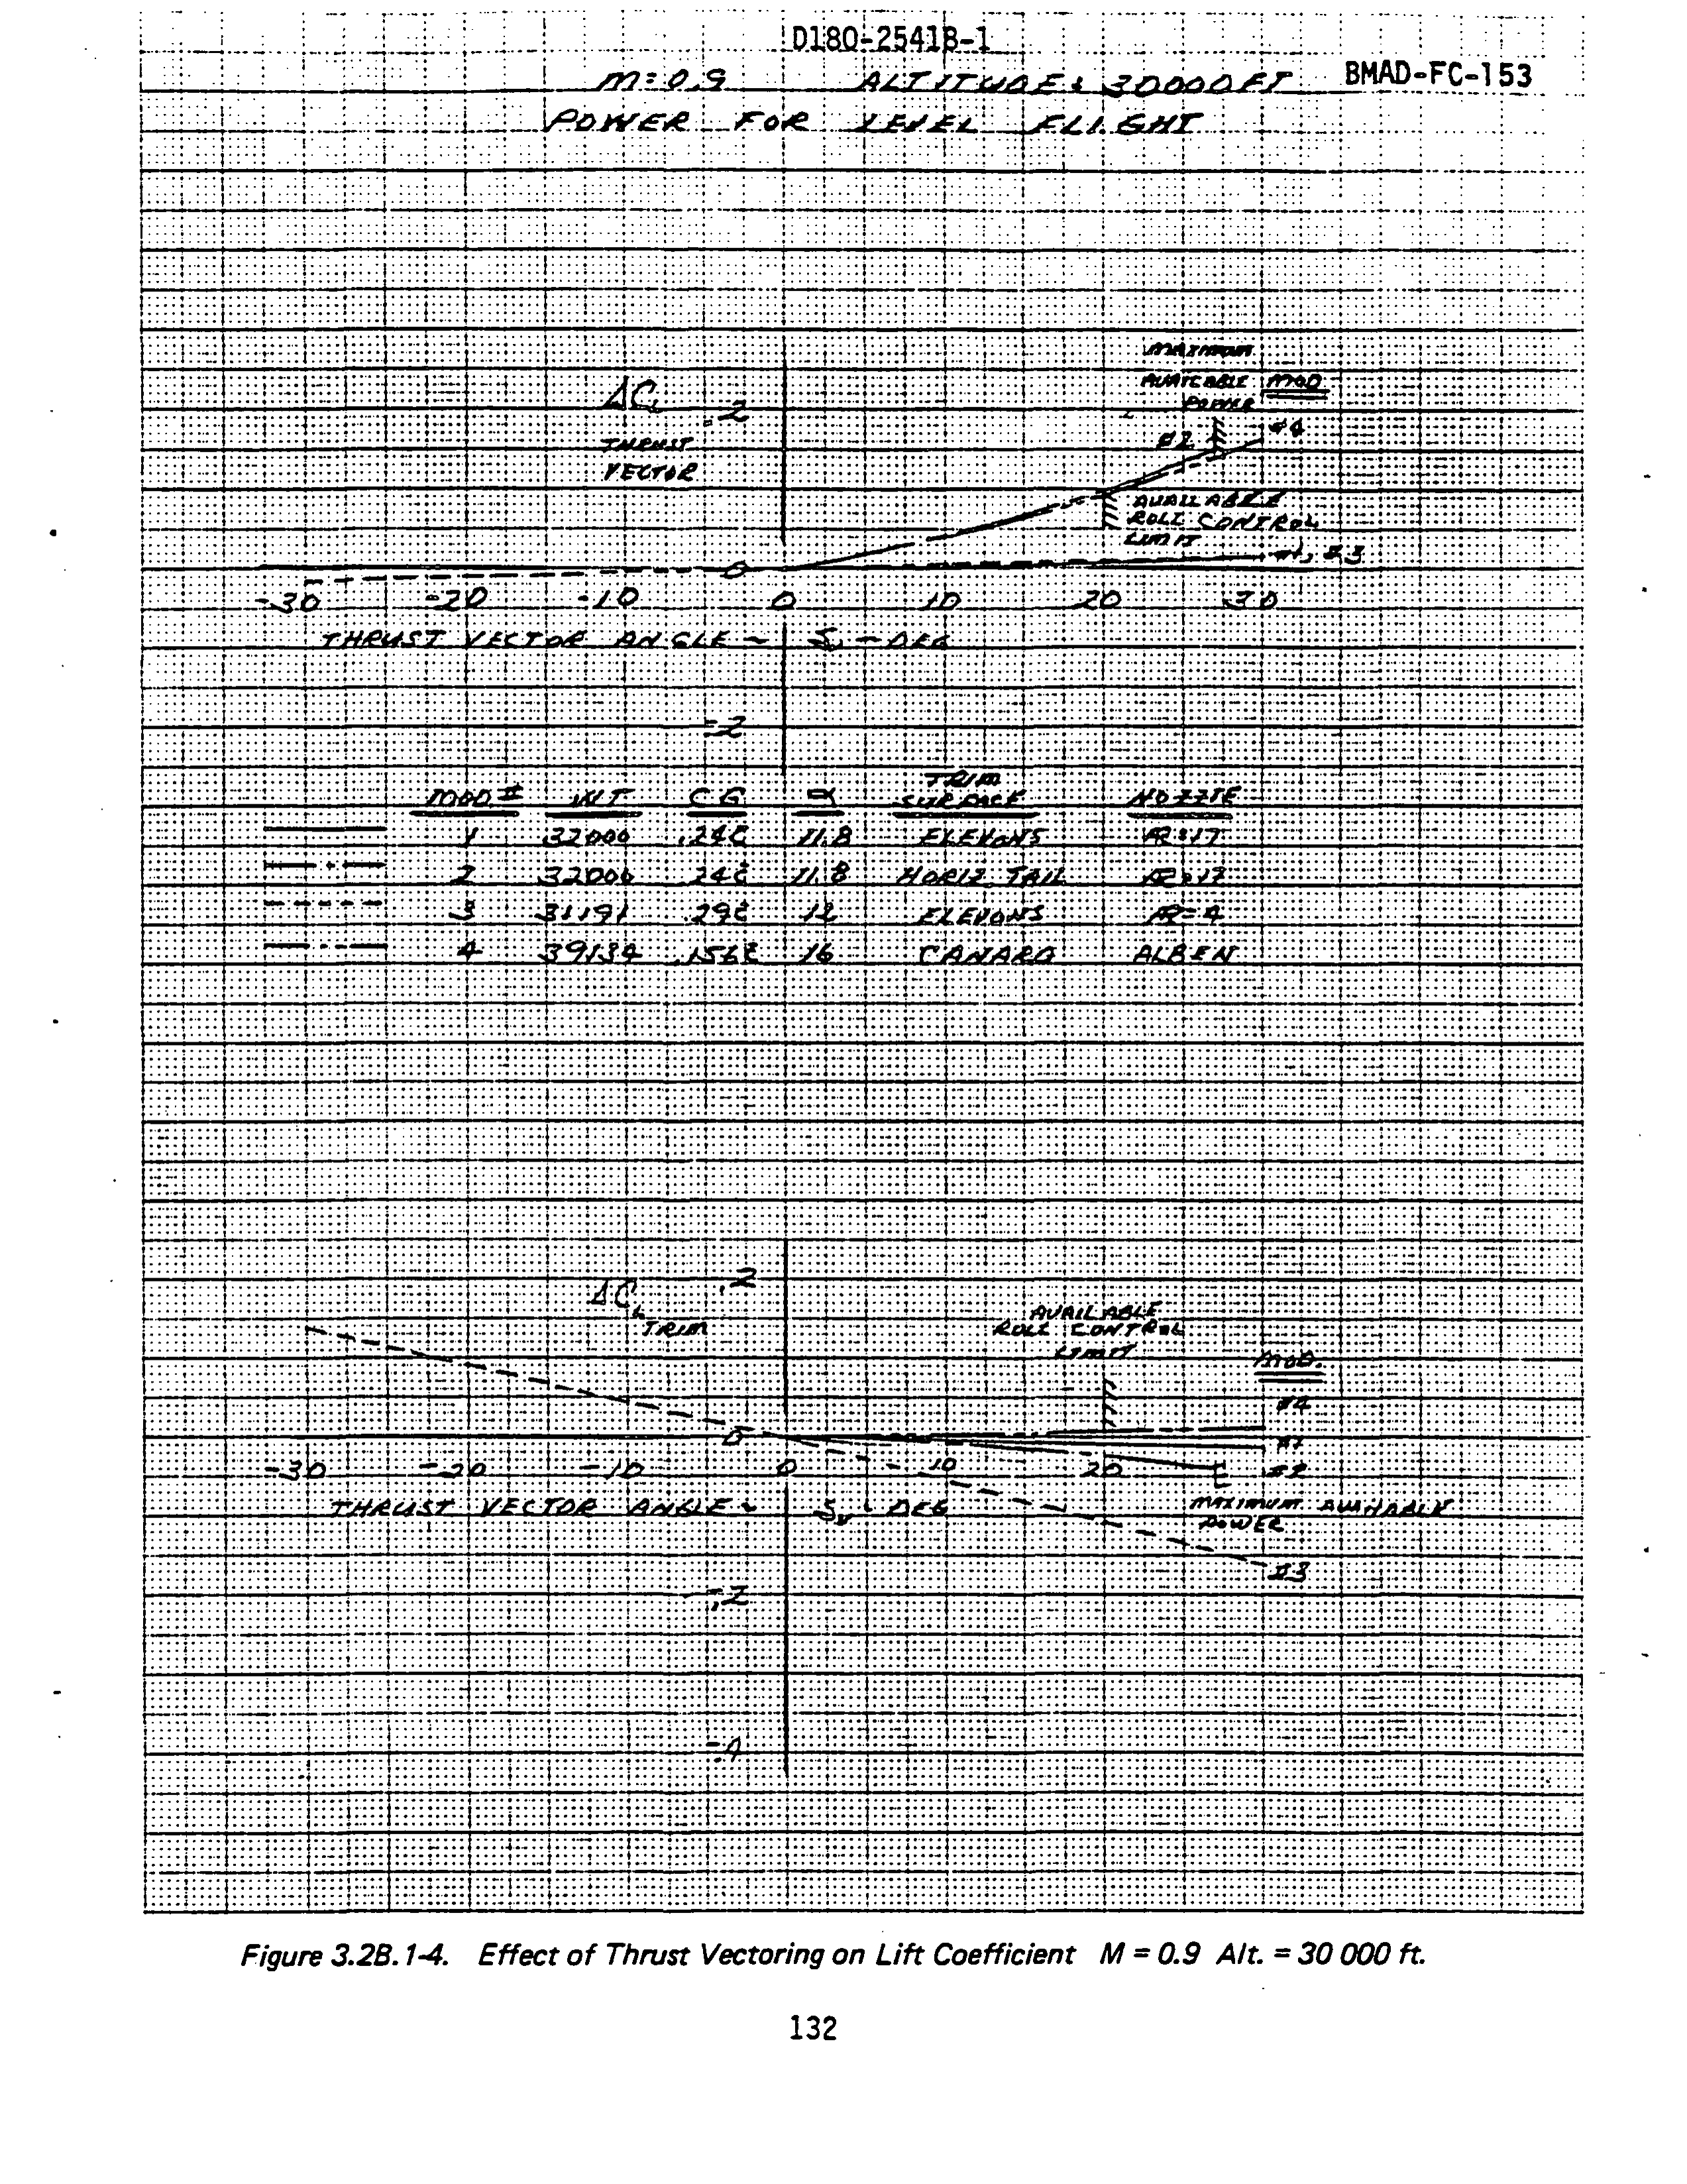 D180-25418-1
M=0.9 ALTITUDE: 30000 FT BMAD-FC-153
POWER FOR LEVEL FLIGHT
MAXIMUM
AVAILABLE MOD
POWER
ΔCL .2
#2 #4
THRUST
VECTOR
AVAILABLE
ROLL CONTROL
LIMIT
#1, #3
0
-30 -20 -10 0 10 20 30
THRUST VECTOR ANGLE ~ δv - DEG
-.2
MOD # WT CG α TRIM SURFACE NOZZLE
1 32000 .24c̄ 11.8 ELEVONS AR=17
2 32000 .24c̄ 11.8 HORIZ TAIL AR=17
3 31191 .29c̄ 12 ELEVONS AR=4
4 39134 .156c̄ 16 CANARD ALBEN
ΔCL TRIM .2
AVAILABLE
ROLL CONTROL
LIMIT
MOD.
#4
0
#1
-30 -20 -10 0 10 20 #2
THRUST VECTOR ANGLE ~ δv ~ DEG
MAXIMUM AVAILABLE
POWER
#3
-.2
-.4
Figure 3.2B.1-4. Effect of Thrust Vectoring on Lift Coefficient M = 0.9 Alt. = 30 000 ft.
132